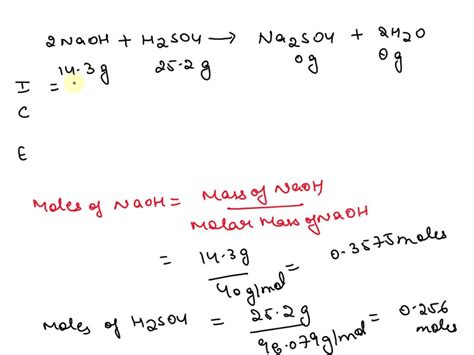 2NaOH + H2SO4 → Na2SO4 + 2H2O
14.3g 25.2g 0g 0g
I =
C
E
Moles of NaOH = Mass of NaOH / Molar Mass of NaOH
= 14.3g / 40g/mol = 0.3575 moles
Moles of H2SO4 = 25.2g / 98.079g/mol = 0.256 moles